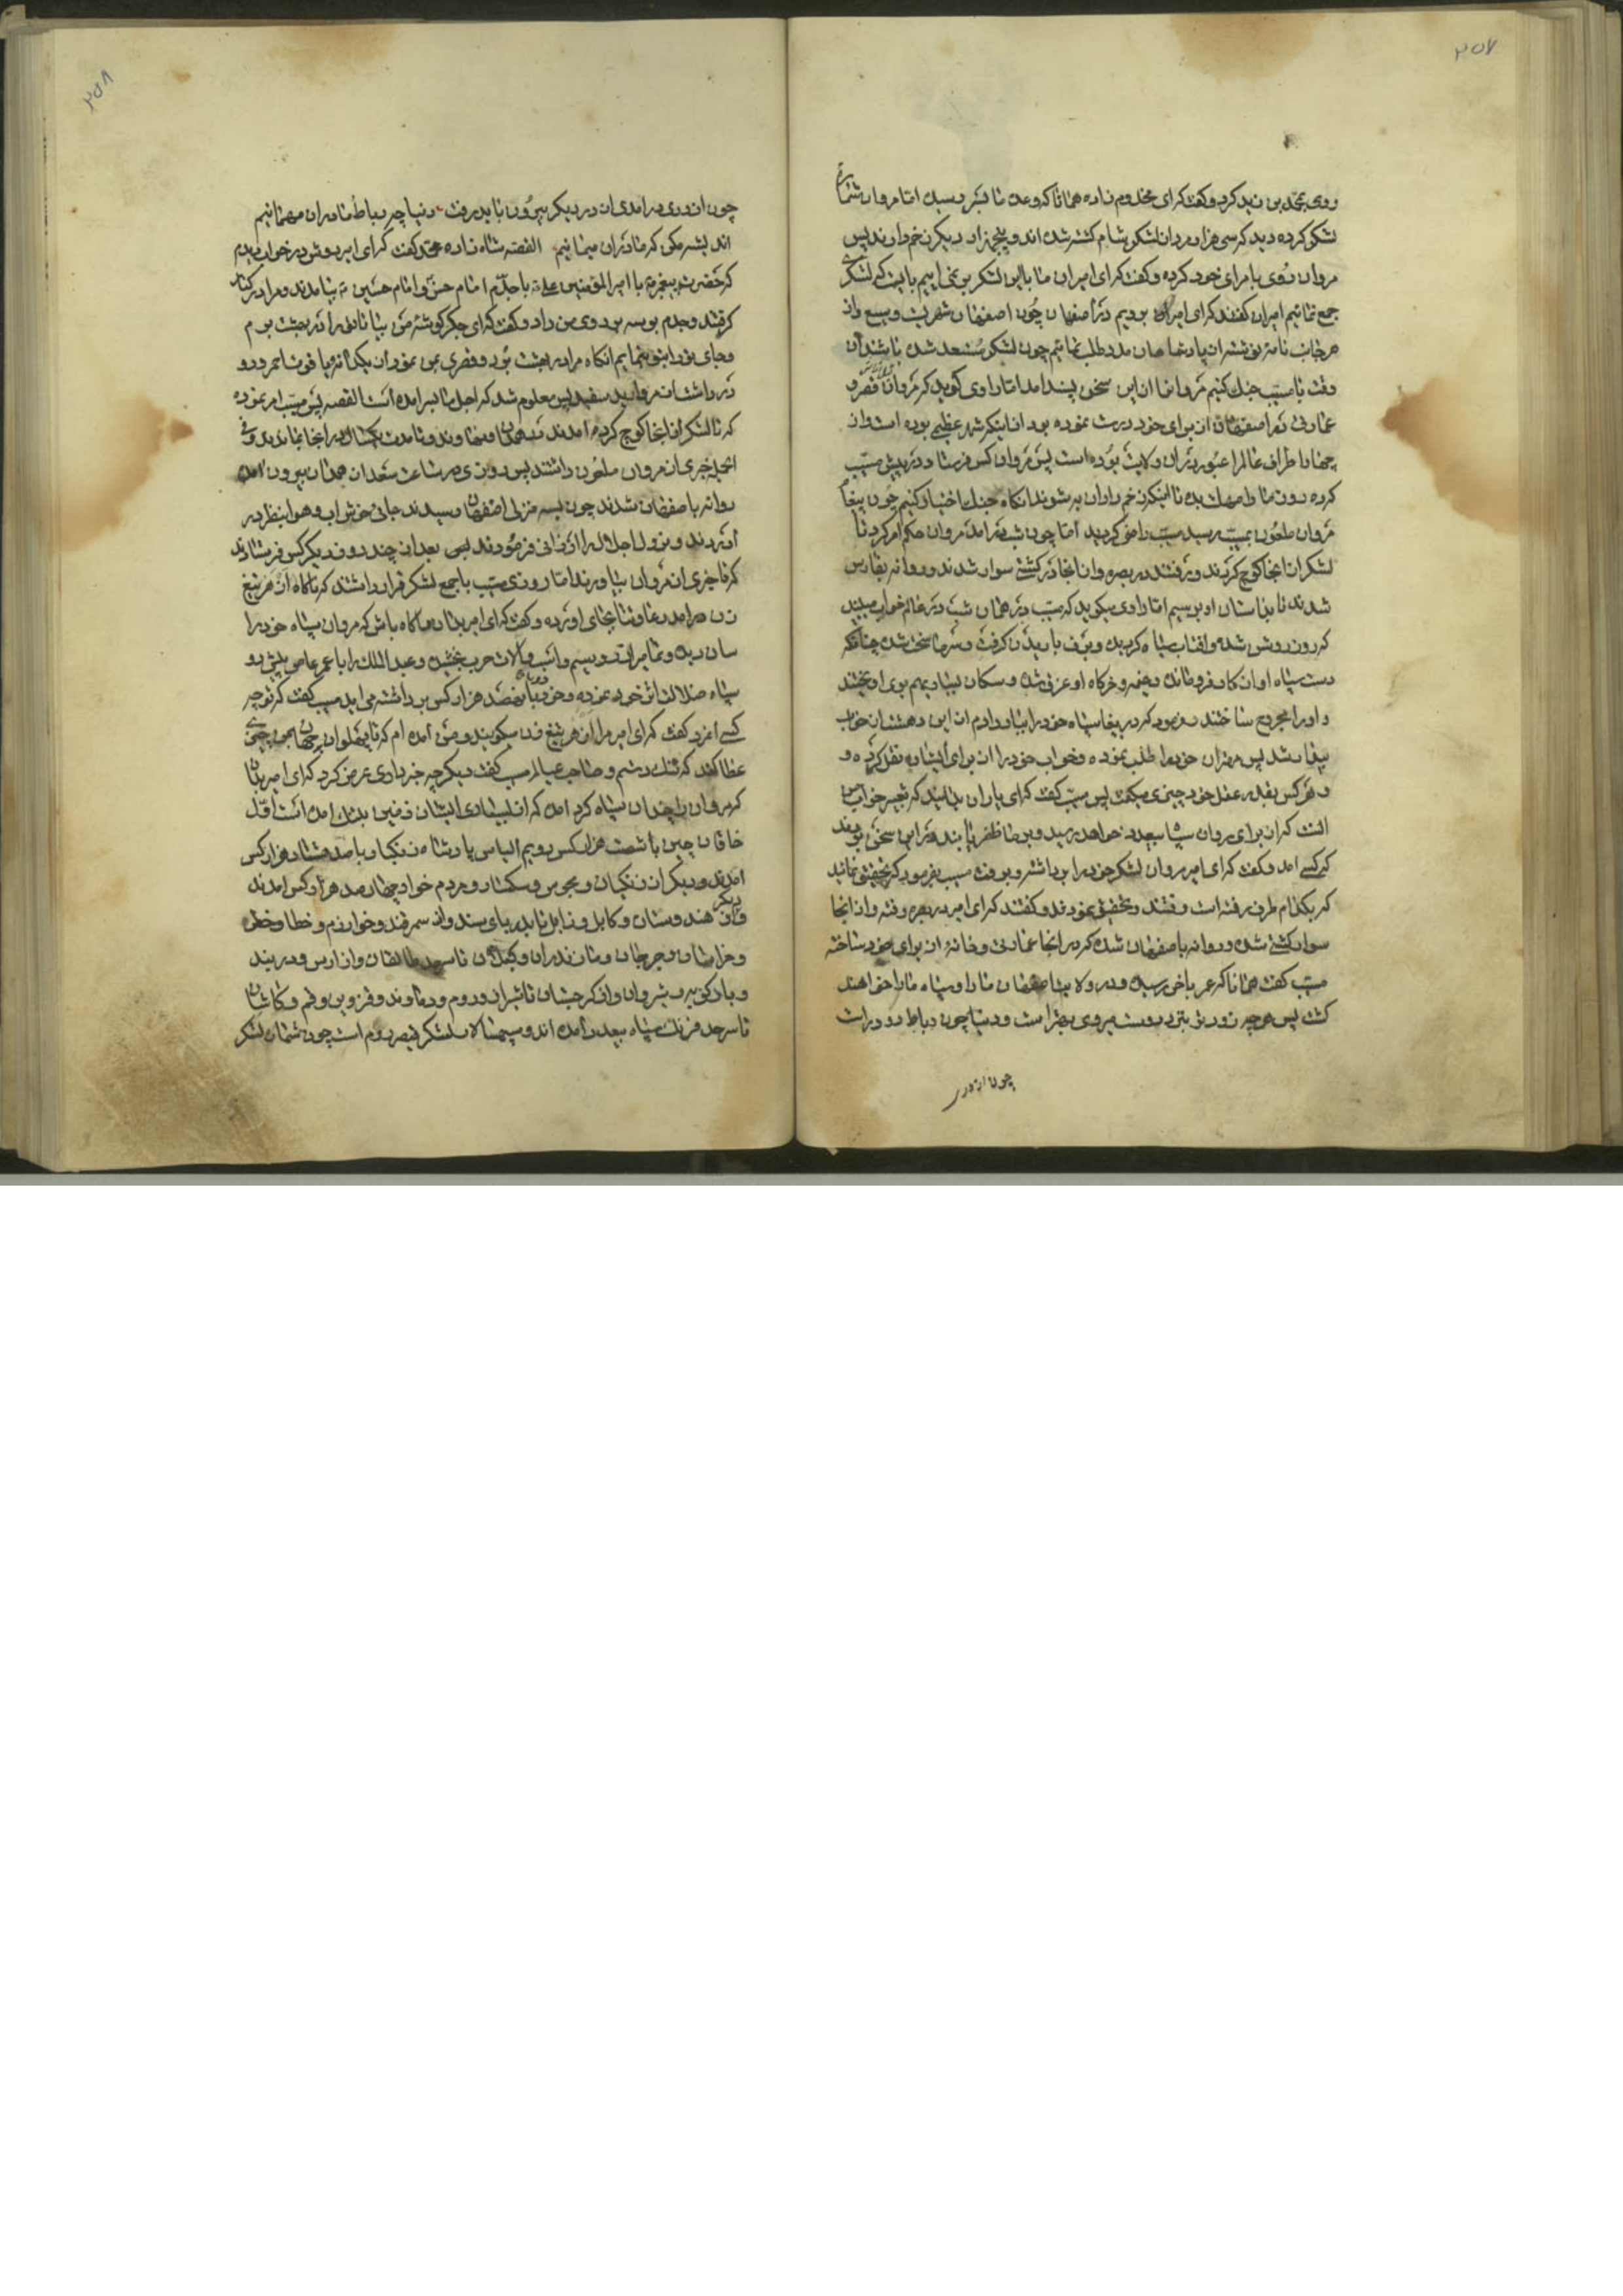 ۲۵۷
روی بمحمد بن زید کرد و گفت که ای مخدوم زاده همانا که وعده ما بسر رسیده اما مروان شماره
لشکر کرده دید که سی هزار مردان لشکر شام کشته شده اند و پنج هزار دیگر زخم دارند پس
مروان روی بامرای خود کرده و گفت که ای امیران ما با این لشکر بر نمی اییم بایست که لشکری
جمع نمائیم امیران گفتند که ای امیر بریم در اصفهان چون اصفهان شهریست وسیع واز
هر جانب نامه نوشته از پادشاهان مدد طلب نمائیم چون لشکر مستعد شده باشد آن
وقت با مسیب جنک کنیم مروانرا از این سخن پسند امد اما راوی گوید که مروان قصر و
عمارتی در اصفهان از برای خود درست نموده بود از اینکه شهر عظیم بوده است واز
چهار اطراف عالم را عبور در ان ولایت بوده است پس مروان کس فرستاد در پیش مسیب
کرده روز ما را مهلت بده تا اینکه زخم داران به شوند انکاه جنک اختیار کنیم چون پیغام
مروان ملعون بمسیب رسید مسیب راضی کردید اما چون شب در امد مروان حکم امر کرد تا
لشکر از انجا کوچ کردند و رفتند در بصره واز انجا در کشتی سوار شدند و روانه بفارس
شدند تا بداستان او برسیم اما راوی میکوید که مسیب در همان شب در عالم خواب میبیند
که روز روشن شده و افتاب سیاه کردیده و برف باریدن کرفت و سرما سخت شده چنانکه
دست سپاه او از کار فرو مانده و خیمه و خرکاه او غرق شده و سکان بسیار بهم بروی او ریختند
و او را مجروح ساختند و میمود که در پیغا سپاه خود را بیاورادم از این دهشت از خواب
بیدار شد پس مهتران خود را طلب نموده و خواب خود را از برای ایشان نقل کرده و
و هر کس بقدر عقل خود چیزی میکفت پس مسیب گفت که ای یاران بدانید که تعبیر خواب من
انست که از برای مروان سپاه بیعدد خواهد رسید و بر ما ظفر یابند در این سخن بودند
که کسی امد و گفت که ای امیر مروان لشکر خود را برداشته و برفت مسیب بفرمود که تحقیق نمائید
که بکدام طرف رفته است رفتند و تحقیق نمودند و گفتند که ای امیر در بصره رفته واز انجا
سوار کشتی شده و روانه باصفهان شده که در انجا عمارتی و خانه از برای خود ساخته
مسیب گفت همانا که عمر باخر رسیده و در ولایت اصفهان ما را و سپاه ما را خواهند
کشت پس هر چه زودتر بتزد دوست میروی بهتر است و دنیا چون رباط دو در است
چون از دری
۲۵۸
چون از دری درامدی از در دیکر بیرون باید رفت دنیا چو رباط ما دران مهمانیم
اندیشه مکن که ما دران میمانیم القصه شاه زاده محمد گفت که ای امیر دوش در خواب دیدم
که حضرت پیغمبر با امیر المؤمنین علی با جدّم امام حسن و امام حسین بیامدند و مرا در کنار
کرفتند و جدم بوسه بر روی من داد و گفت که ای جکر کوشه من بیا تا تو را در بهشت بریم
و جای تو را بتو بنمایم انکاه مرا در بهشت برد و قصری بمن نمود از یکدانه یاقوت احمر و دو
در داشت از مروارید سفید پس معلوم شد که اجل ما بسر امده است القصه پس مسیب امر نموده
که تا لشکر از انجا کوچ کرده امدند بهمدان و نهاوند و تا مدت یکسال در انجا بماندند و از
انجا خبری از مروان ملعون داشتند پس روزی در ساعت سعد از همدان بیرون امده
روانه باصفهان شدند چون بسه منزلی اصفهان رسیدند جائی خوش اب و هوا بنظر در
اوردند و نزول اجلال را ارزانی فرمودند پس بعد از چند روز دیکر کس فرستادند
که تا خبری از مروان بیاورند اما روزی مسیب با جمع لشکر قرار داشتند که ناکاه از هر تیغ
زن درامد دعا و ثنا بجای اورده و گفت که ای امیر بدان و آکاه باش که مروان سپاه خود را
سان دیده و تمامرا زر و سیم و اسب و الات حرب بخشیده و عبد الملک را با عمر عاص پیش رو
سپاه ضلالت اثر خود نموده و خود با نهصد هزار کس برداشته می اید مسیب گفت که تو چه
کسی انمرد گفت که ای امیر مرا از هر تیغ زن میکویند و من امده ام که تا پهلوان جهان بمن چیزی
عطا کند که تنک دستم و صاحب عیالم مسیب گفت دیکر چه خبر داری عرض کرد که ای امیر بدان
که مروان را چندان سپاه کرد امده که از بسیاری ایشان زمین بتنک امده است اوّل
خاقان چین با شصت هزار کس دویم الیاس پادشاه زنکبار با صد و شتاد هزار کس
امدند و دیگران زنکیان و مجوس و سکسار و مردم خوار چهار صد هزار کس امدند
واز هندوستان و کابل و زابل تا بدریای سند واز سمرقند و خوارزم و خطا و ختن
و خراسان و جرجان و مازندران و کیلان تا سرحد طالقان واز ارس و دربند
و بادکوبه و شروان واز کرجستان تا شیراز و روم و دماوند و قزوین و قم و کاشان
تا سرحد فرنک سپاه بیعدد امده اند و سپهسالار لشکر قیصر روم است چون شماره لشکر